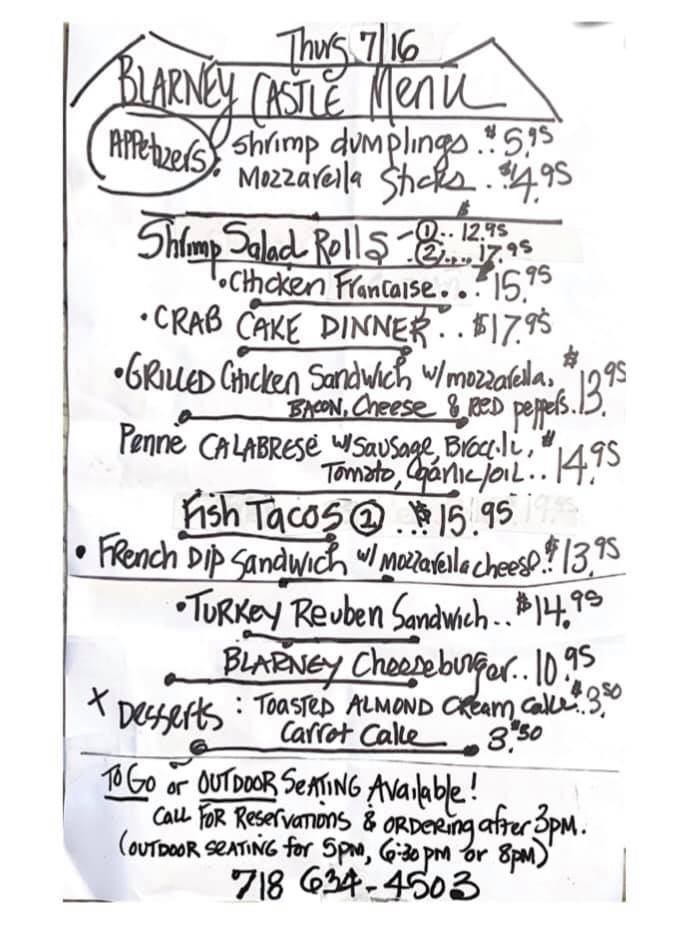 Thurs 7/16
BLARNEY CASTLE Menu
Appetizers: Shrimp dumplings..$5.95
Mozzarella Sticks..$4.95
Shrimp Salad Rolls -①.. $12.95
②.... 17.95
•Chicken Francaise...$15.95
•CRAB CAKE DINNER..$17.95
•GRILLED Chicken Sandwich w/mozzarella, $13.95
BACON, Cheese & RED peppers.
Penne CALABRESE w/Sausage, Brocc.li, $14.95
Tomato, Garlic/oil..
Fish Tacos ② ...$15.95
• French Dip Sandwich w/Mozzarella cheese.$13.95
•Turkey Reuben Sandwich..$14.95
BLARNEY Cheeseburger..10.95
X Desserts: TOASTED ALMOND Cream Cake.$3.50
Carrot Cake $3.50
TO GO or OUTDOOR SEATING Available!
CALL FOR Reservations & ORDERING after 3pm.
(OUTDOOR SEATING for 5PM, 6:30pm or 8pm)
718 634-4503